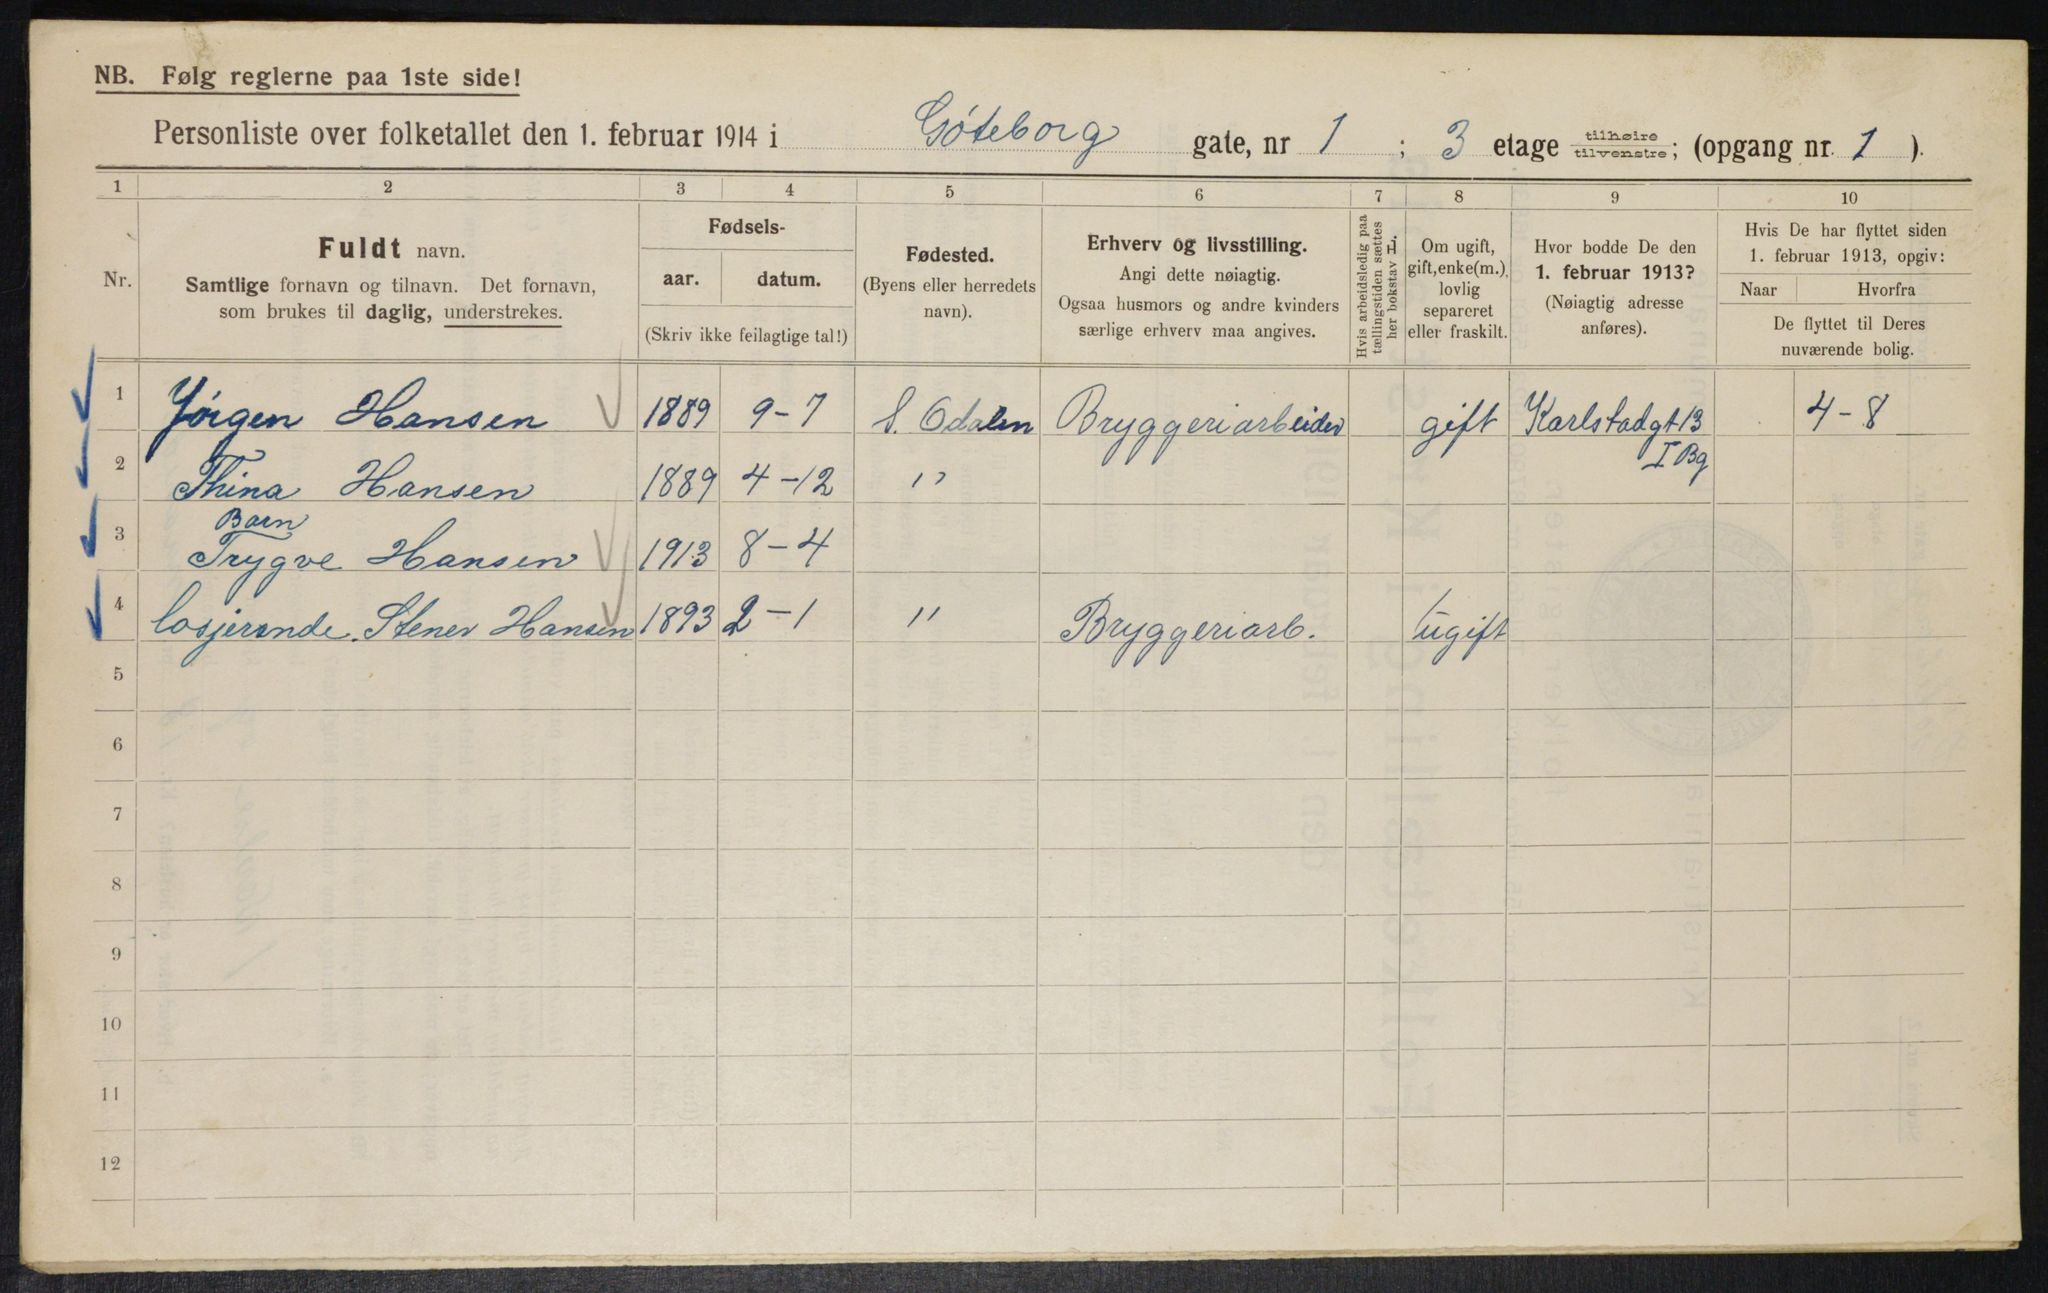 NB. Følg reglerne paa 1ste side!
Personliste over folketallet den 1. februar 1914 i Göteborg gate, nr 1 ; 3 etage tilhøire / tilvenstre; (opgang nr. 1 ).
1 2 3 4 5 6 7 8 9 10
Nr.
Fuldt navn.
Samtlige fornavn og tilnavn. Det fornavn,
som brukes til daglig, understrekes.
Fødsels-
aar. datum.
(Skriv ikke feilagtige tal!)
Fødested.
(Byens eller herredets
navn).
Erhverv og livsstilling.
Angi dette nøiagtig.
Ogsaa husmors og andre kvinders
særlige erhverv maa angives.
Hvis arbeidsledig paa
tællingstiden sættes
her bokstav H.
Om ugift,
gift, enke(m.),
lovlig
separeret
eller fraskilt.
Hvor bodde De den
1. februar 1913?
(Nøiagtig adresse
anføres).
Hvis De har flyttet siden
1. februar 1913, opgiv:
Naar Hvorfra
De flyttet til Deres
nuværende bolig.
1 Jörgen Hansen 1889 9-7 S. Odalen Bryggeriarbeider gift Karlstadgt 13 4-8
I Bg
2 Thina Hansen 1889 4-12 "
Barn
3 Trygve Hansen 1913 8-4
4 losjerende. Stener Hansen 1893 2-1 " Bryggeriarb. ugift
5
6
7
8
9
10
11
12